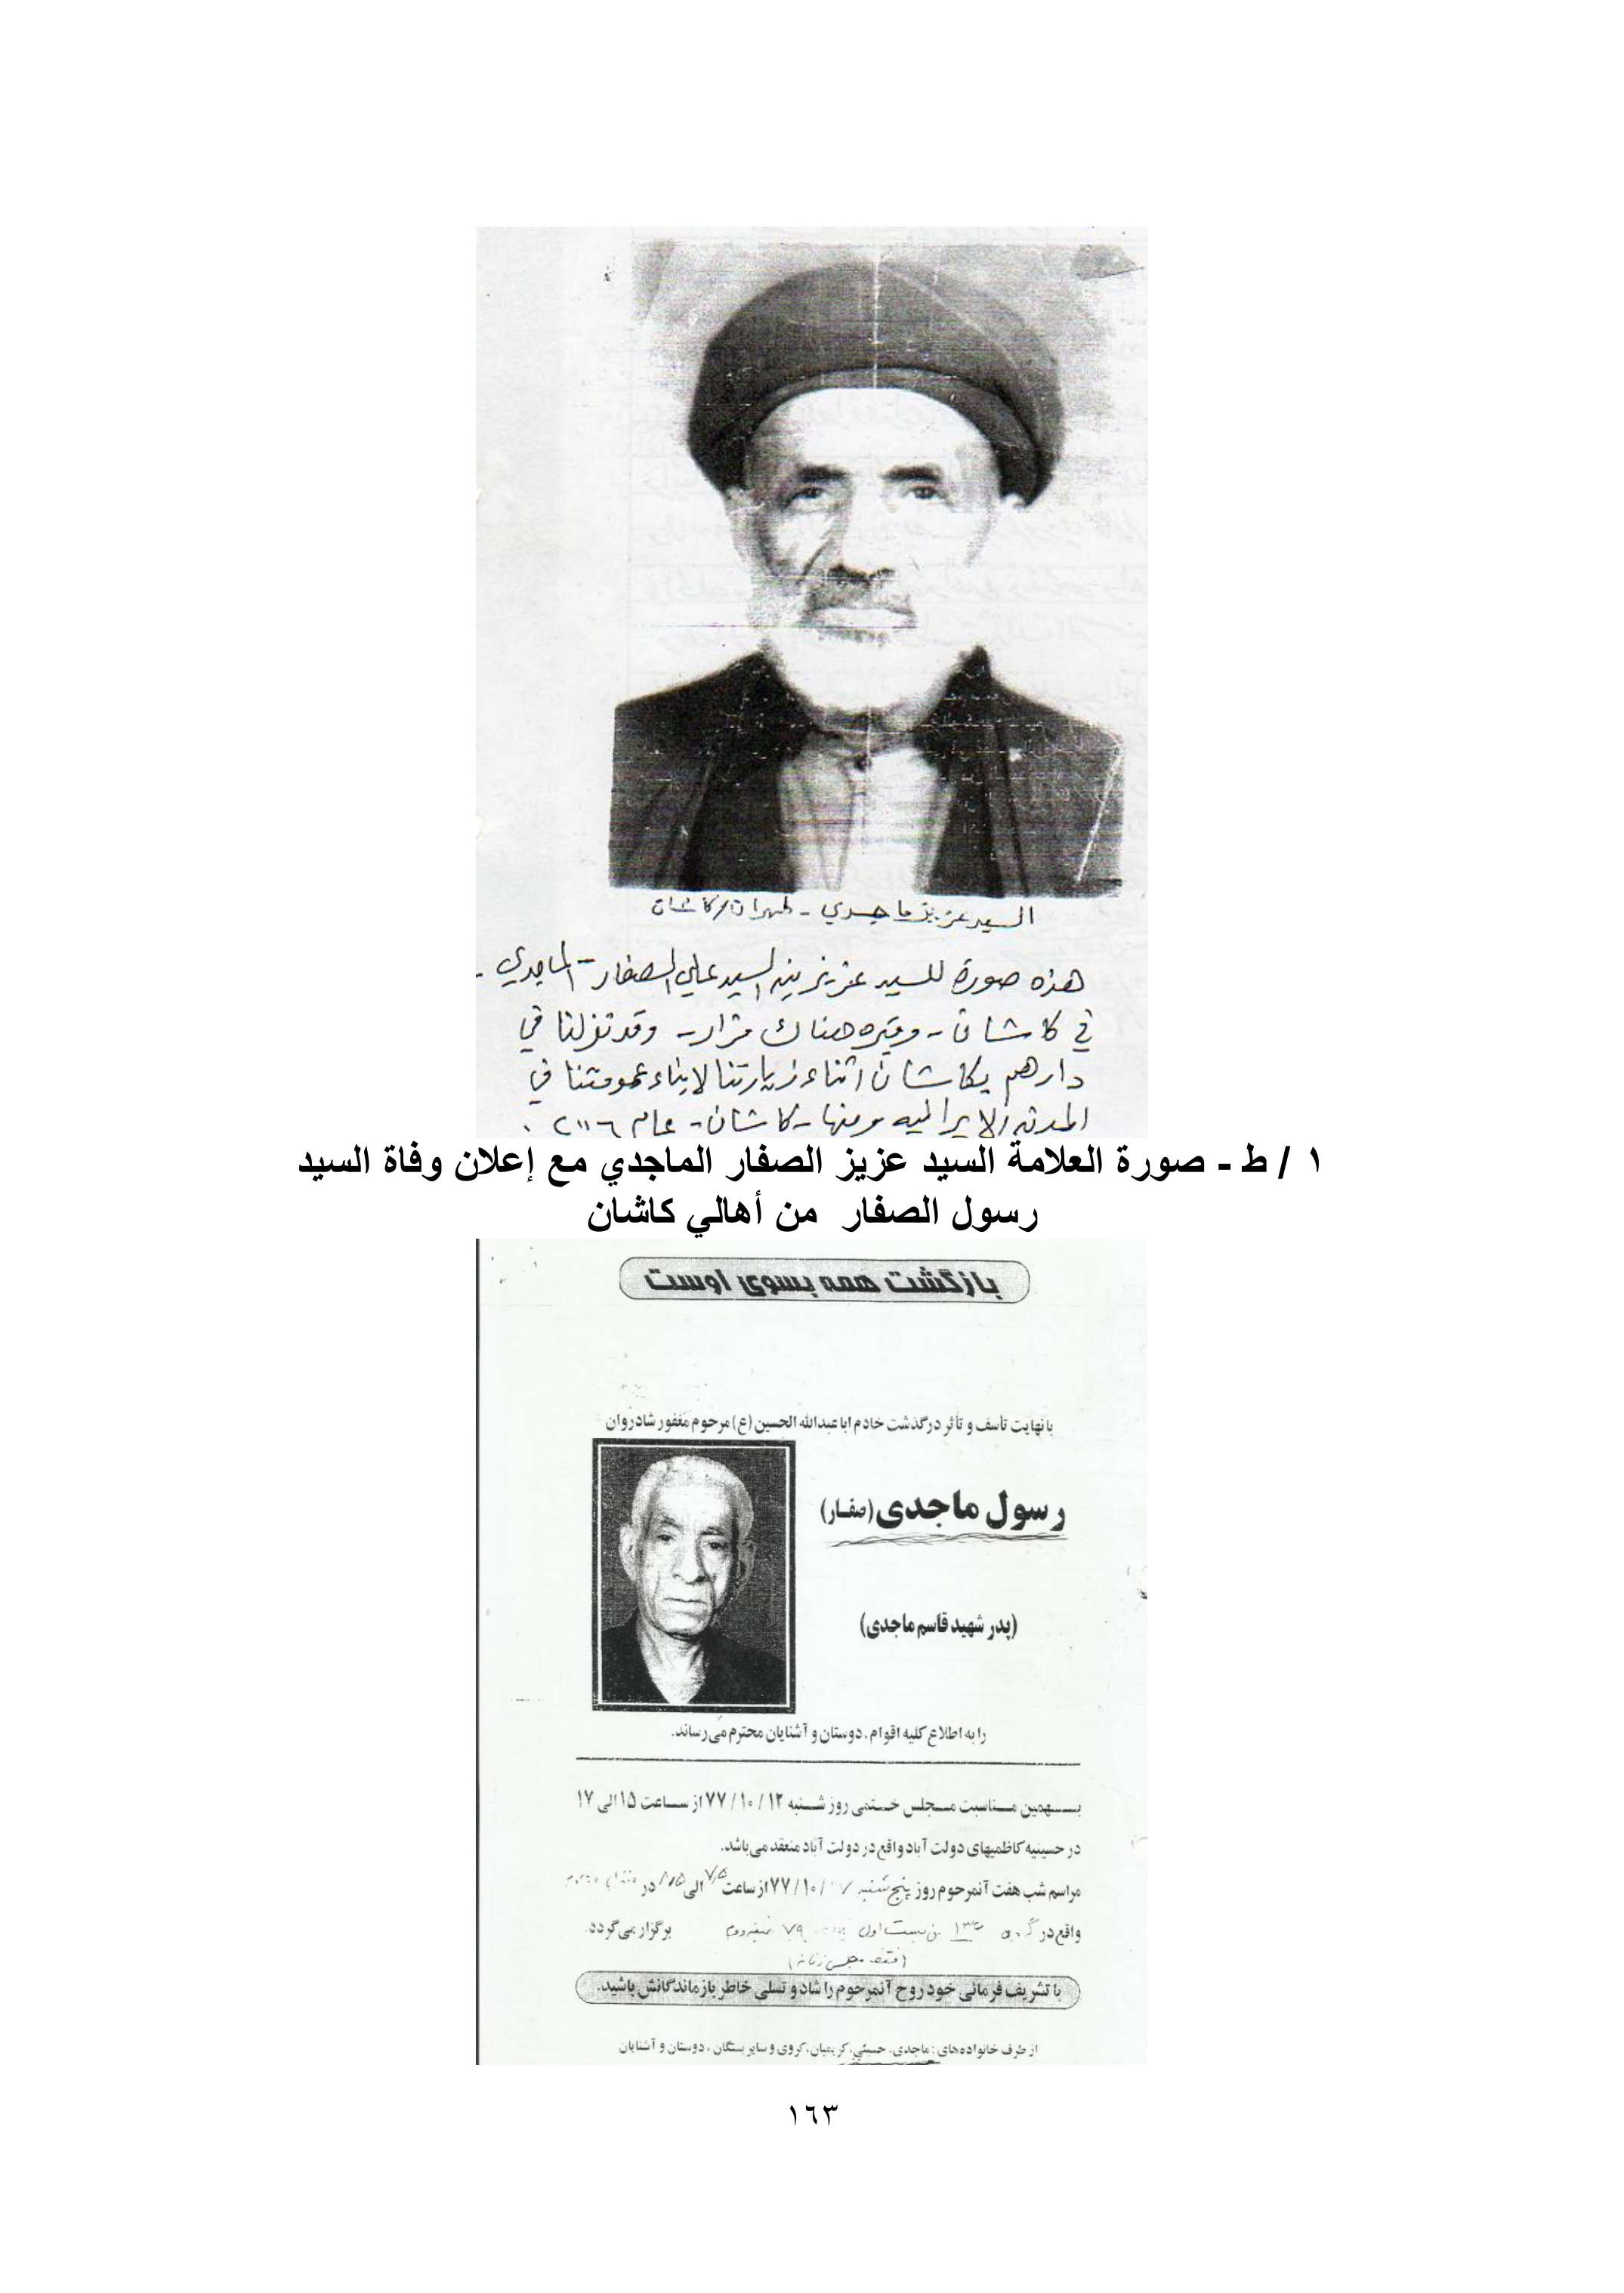 السيد عزيز ماجدي - طهران/كاشان
هذه صورة للسيد عزيز بن السيد علي الصفار - الماجدي -
في كاشان - وقبره هناك مزار - وقد نزلنا في
دارهم بكاشان اثناء زيارتنا لابناء عمومتنا في
المدن الايرانيه ومنها - كاشان - عام ٢٠٠٦ .
١ / ط - صورة العلامة السيد عزيز الصفار الماجدي مع إعلان وفاة السيد
رسول الصفار من أهالي كاشان
بازگشت همه بسوی اوست
با نهایت تأسف و تأثر درگذشت خادم اباعبدالله الحسین (ع) مرحوم مغفور شادروان
رسول ماجدی (صفار)
(پدر شهید قاسم ماجدی)
را به اطلاع کلیه اقوام، دوستان و آشنایان محترم می‌رساند.
بهمین مناسبت مجلس ختمی روز شنبه ۷۷/۱۰/۱۲ از ساعت ۱۵ الی ۱۷
در حسینیه کاظمیهای دولت آباد واقع در دولت آباد منعقد می‌باشد.
مراسم شب هفت آنمرحوم روز پنج شنبه ۷۷/۱۰/ از ساعت الی در
واقع در اول ۷۹ برگزار می‌گردد.
(فقط مجلس زنانه)
با تشریف فرمائی خود روح آنمرحوم را شاد و تسلی خاطر بازماندگانش باشید.
از طرف خانواده‌های: ماجدی، حسینی، کریمیان، کروی و سایر بستگان، دوستان و آشنایان
١٦٣